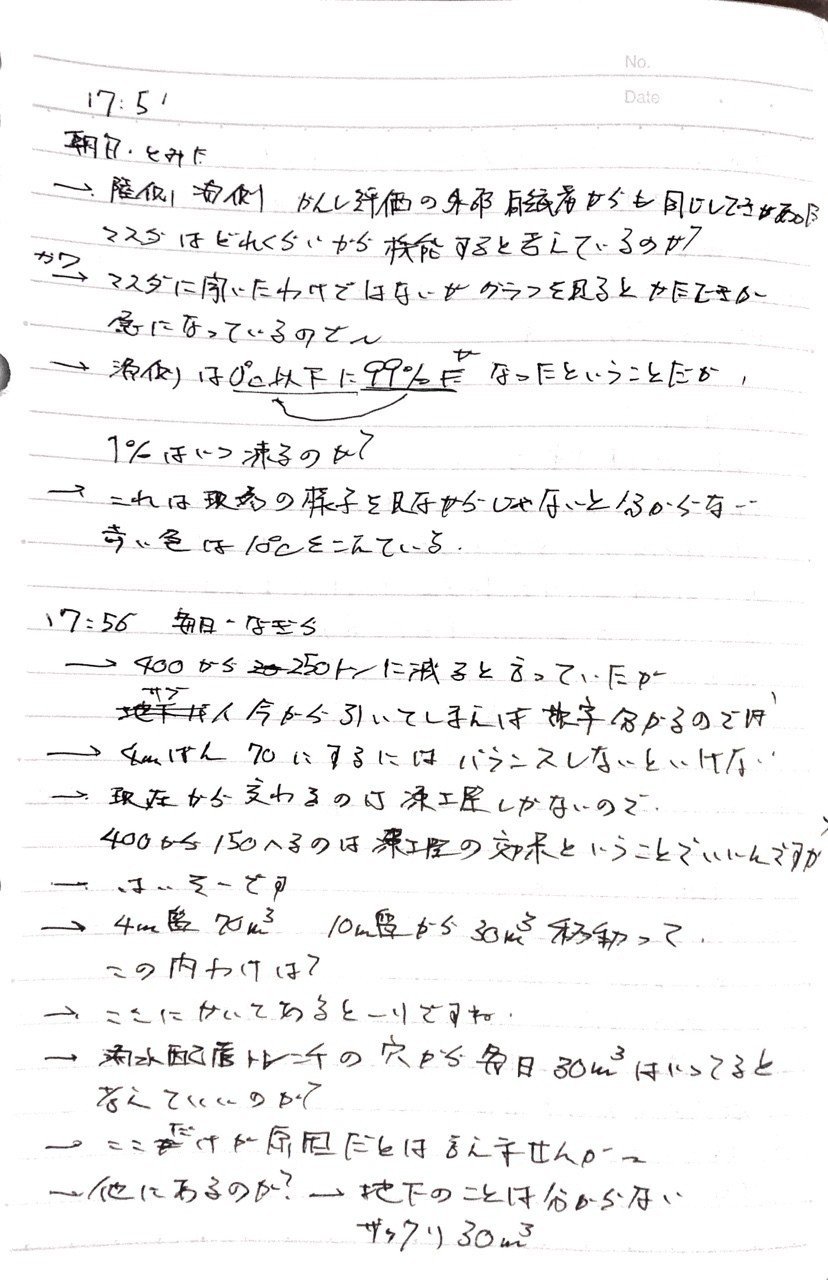 No.
Date
17:51
朝日・とみた
→ 陸側 海側 かんし評価の外部有識者からも同じしてきがあった
マスダはどれくらいから機能すると考えているのか?
カワ
→ マスダに聞いたわけではないが グラフを見ると かたむきが
急になっているので〜
→ 海側は0℃以下に99%が なったということだが、
1%はいつ凍るのか?
→ これは現場の様子を見ながらじゃないと分からない
赤い色は10℃をこえている。
17:56 毎日・なぎら
→ 400から250トンに減ると言っていたが
サブ 今から引いてしまえば 数字分かるのでは
→ 4mばん 70にするには バランスしないといけない
→ 現在から変わるのは凍土壁しかないので、
400から150へるのは凍土壁の効果ということでいいんですか
→ はいそーです
→ 4m盤 70m³ 10m盤から30m³移動って、
この内わけは?
→ ここにかいてあるとーりですね。
→ 海水配管トレンチの穴から毎日30m³はいってると
考えていいのか?
→ ここだけが原因だとは言えませんが〜
→ 他にあるのか? → 地下のことは分からない
ザックリ30m³